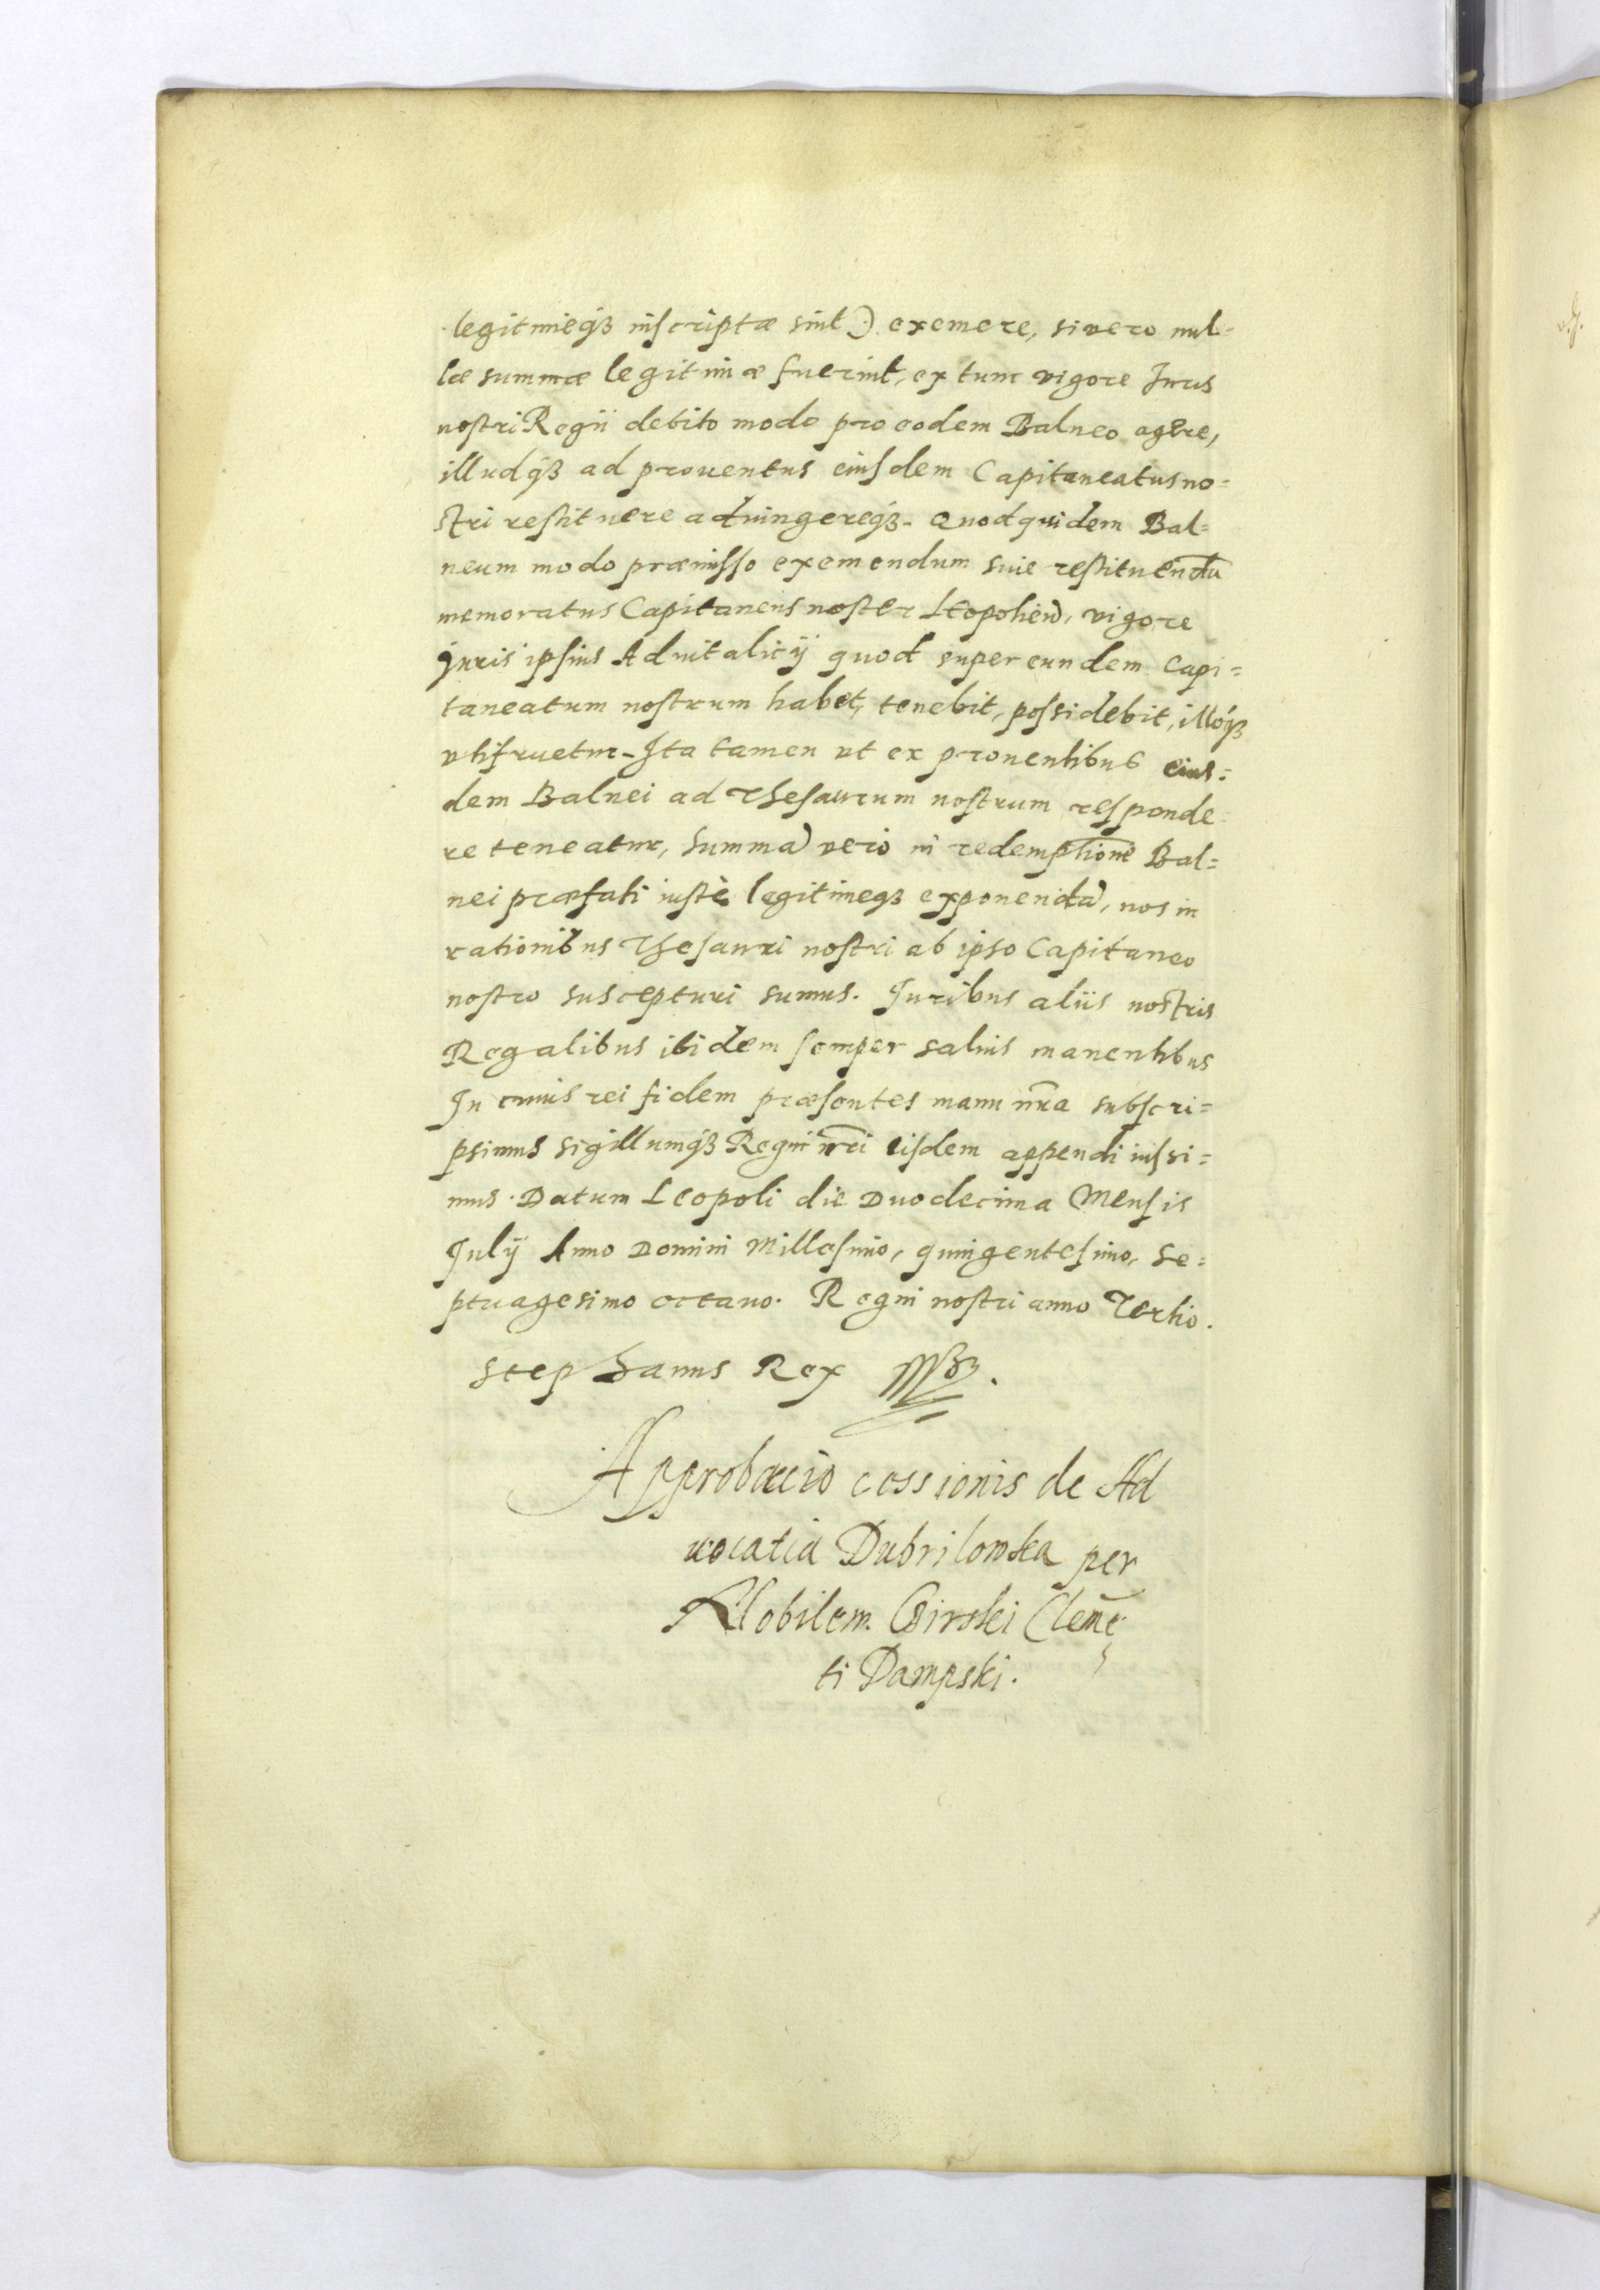 legitimeqȝ inscriptæ sint :) exemere, si vero nul=
læ summæ legitimæ fuerint, ex tunc vigore Iuris
nostri Regii debito modo pro eodem Balneo agere,
illudqȝ ad prouentus eiusdem Capitaneatus no=
stri restituere aduingereqȝ. Quod quidem Bal=
neum modo præmisso exemendum siue restituendū
memoratus Capitaneus noster Leopolien, vigore
Iuris ipsius Aduitalicij quod super eundem Capi=
taneatum nostrum habet, tenebit, possidebit, illoqȝ
vtifruetur. Ita tamen vt ex prouentibus eius=
dem Balnei ad Thesaurum nostrum responde
re teneatur, summā vero in redemptione Bal=
nei præfati iustè legitimeqȝ exponendā, nos in
rationibus Thesauri nostri ab ipso Capitaneo
nostro suscepturi sumus. Iuribus aliis nostris
Regalibus ibidem semper saluis manentibus
In cuius rei fidem præsentes manu nr̄a subscri=
psimus sigillumqȝ Regni nr̄i eisdem appendi iussi=
mus. Datum Leopoli die Duodecima Mensis
Iulij Anno Domini Millesimo, quingentesimo, se=
ptuagesimo octauo. Regni nostri anno Tertio.
Stephanus Rex
Approbacio cessionis de Ad
uocatia Dubrilowska per
Nobilem Girski Clemē
ti Dampski.